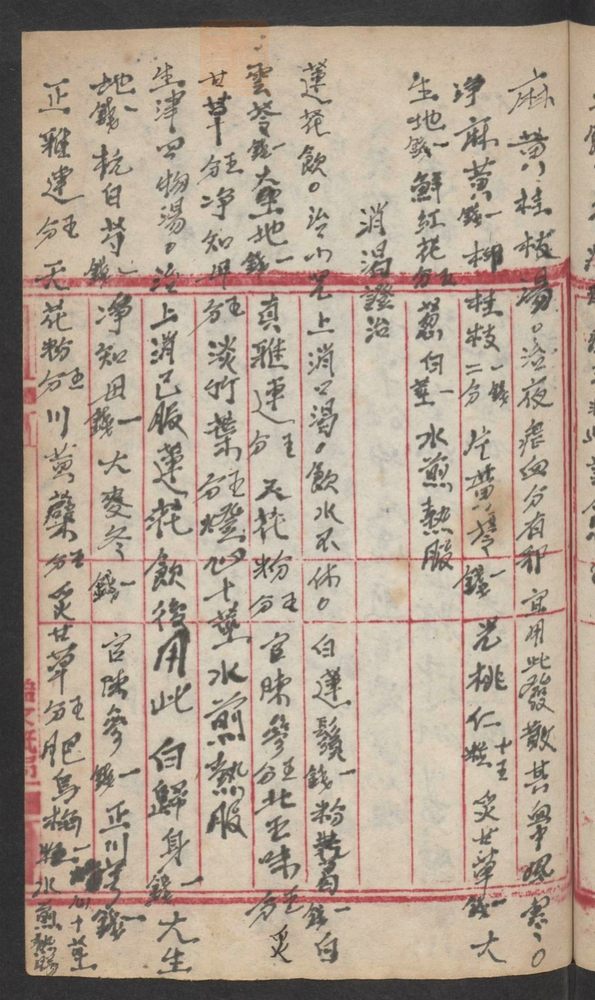 麻黃桂枝湯。治夜瘧血分有邪宜用此發散其血中風寒。
淨麻黃錢一柳桂枝二分一錢片黃芩錢一光桃仁粒十五炙甘草錢一大
生地錢一鮮紅花分五葱白莖一水煎熱服
消渴證治
蓮花飲。治小兒上消口渴。飲水不休。白蓮鬚錢一粉葛錢一白
雲苓錢一大生地錢一真雅連分五天花粉分五官陳參分五北五味分五炙
甘草分五淨知母分五淡竹葉分五燈心十莖水煎熱服
生津四物湯。治上消已服蓮花飲後用此白歸身錢一大生
地錢一杭白芍錢一淨知母錢一大麥冬錢一官陳參錢一正川芎錢一
正雅連分五天花粉分五川黃蘗分五炙甘草分五肥烏梅粒一燈心十莖水煎熱服